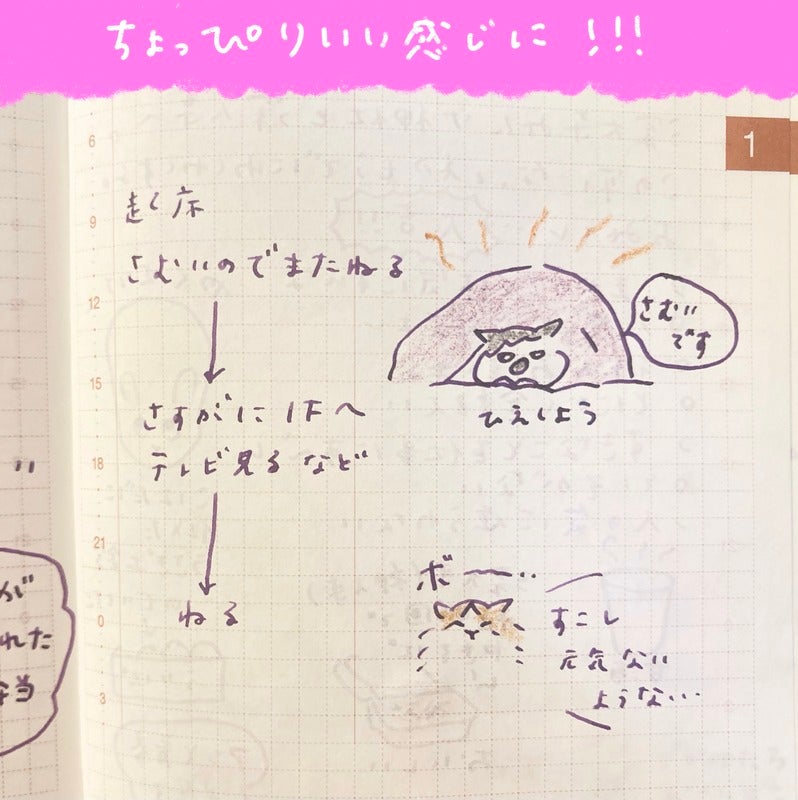 ちょっぴりいい感じに!!!
1
6
9
12
15
18
21
0
3
起床
さむいのでまたねる
さすがに1Fへ
テレビ見るなど
ねる
さむい
です
ひえしょう
ボーー‥
すこし
元気ない
ような‥
"
が
れた
弁当